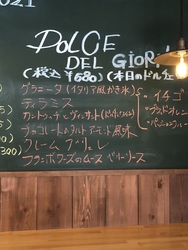 2021
DOLCE
DEL GIOR
(税込 ¥680) (本日のドルチェ
グラニータ (イタリア風かき氷)
ティラミス
カントゥッチ と ヴィンサント
チョコレートのタルト アーモンド風味
クレーム ブリュレ
フランボワーズのムース ベリーソース
イチゴ
ブラッドオレンジ
320)